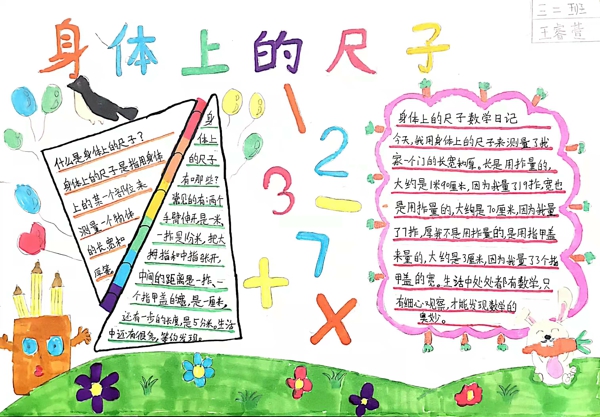 身体上的尺子
三二班
王睿萱
什么是身体上的尺子?
身体上的尺子是指用身体
上的某一个部位来
测量一个物体
的长宽和
厚等
身
体上
的尺子
有哪些?
常见的有:两个
手臂伸开是一米,
一拃是1分米,把大
拇指和中指张开,
中间的距离是一拃、一
个指甲盖的宽,是一厘米。
还有一步的长度,是5分米。生活
中还有很多,等你发现。
1
2
3
7
+
×
身体上的尺子数学日记
今天,我用身体上的尺子来测量了我
家一个门的长宽和厚。长是用拃量的,
大约是1米90厘米,因为我量了19拃,宽也
是用拃量的,大约是70厘米,因为我量
了7拃,厚我不是用拃量的,是用指甲盖
来量的,大约是3厘米,因为我量了3个指
甲盖的宽。生活中处处都有数学,只
有细心观察,才能发现数学的
奥妙。